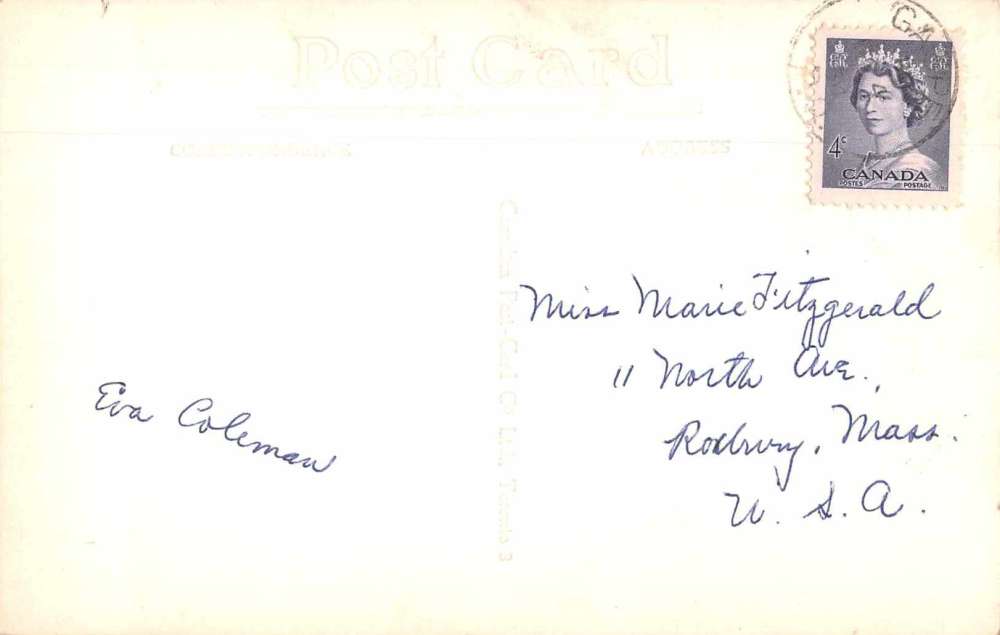 Post Card
CORRESPONDENCE
ADDRESS
CANADA
POSTES POSTAGE
4¢
Miss Marie Fitzgerald
11 North Ave.,
Roxbury, Mass.
U. S. A.
Eva Coleman
Canadian Post-Card Co. Ltd., Toronto 3